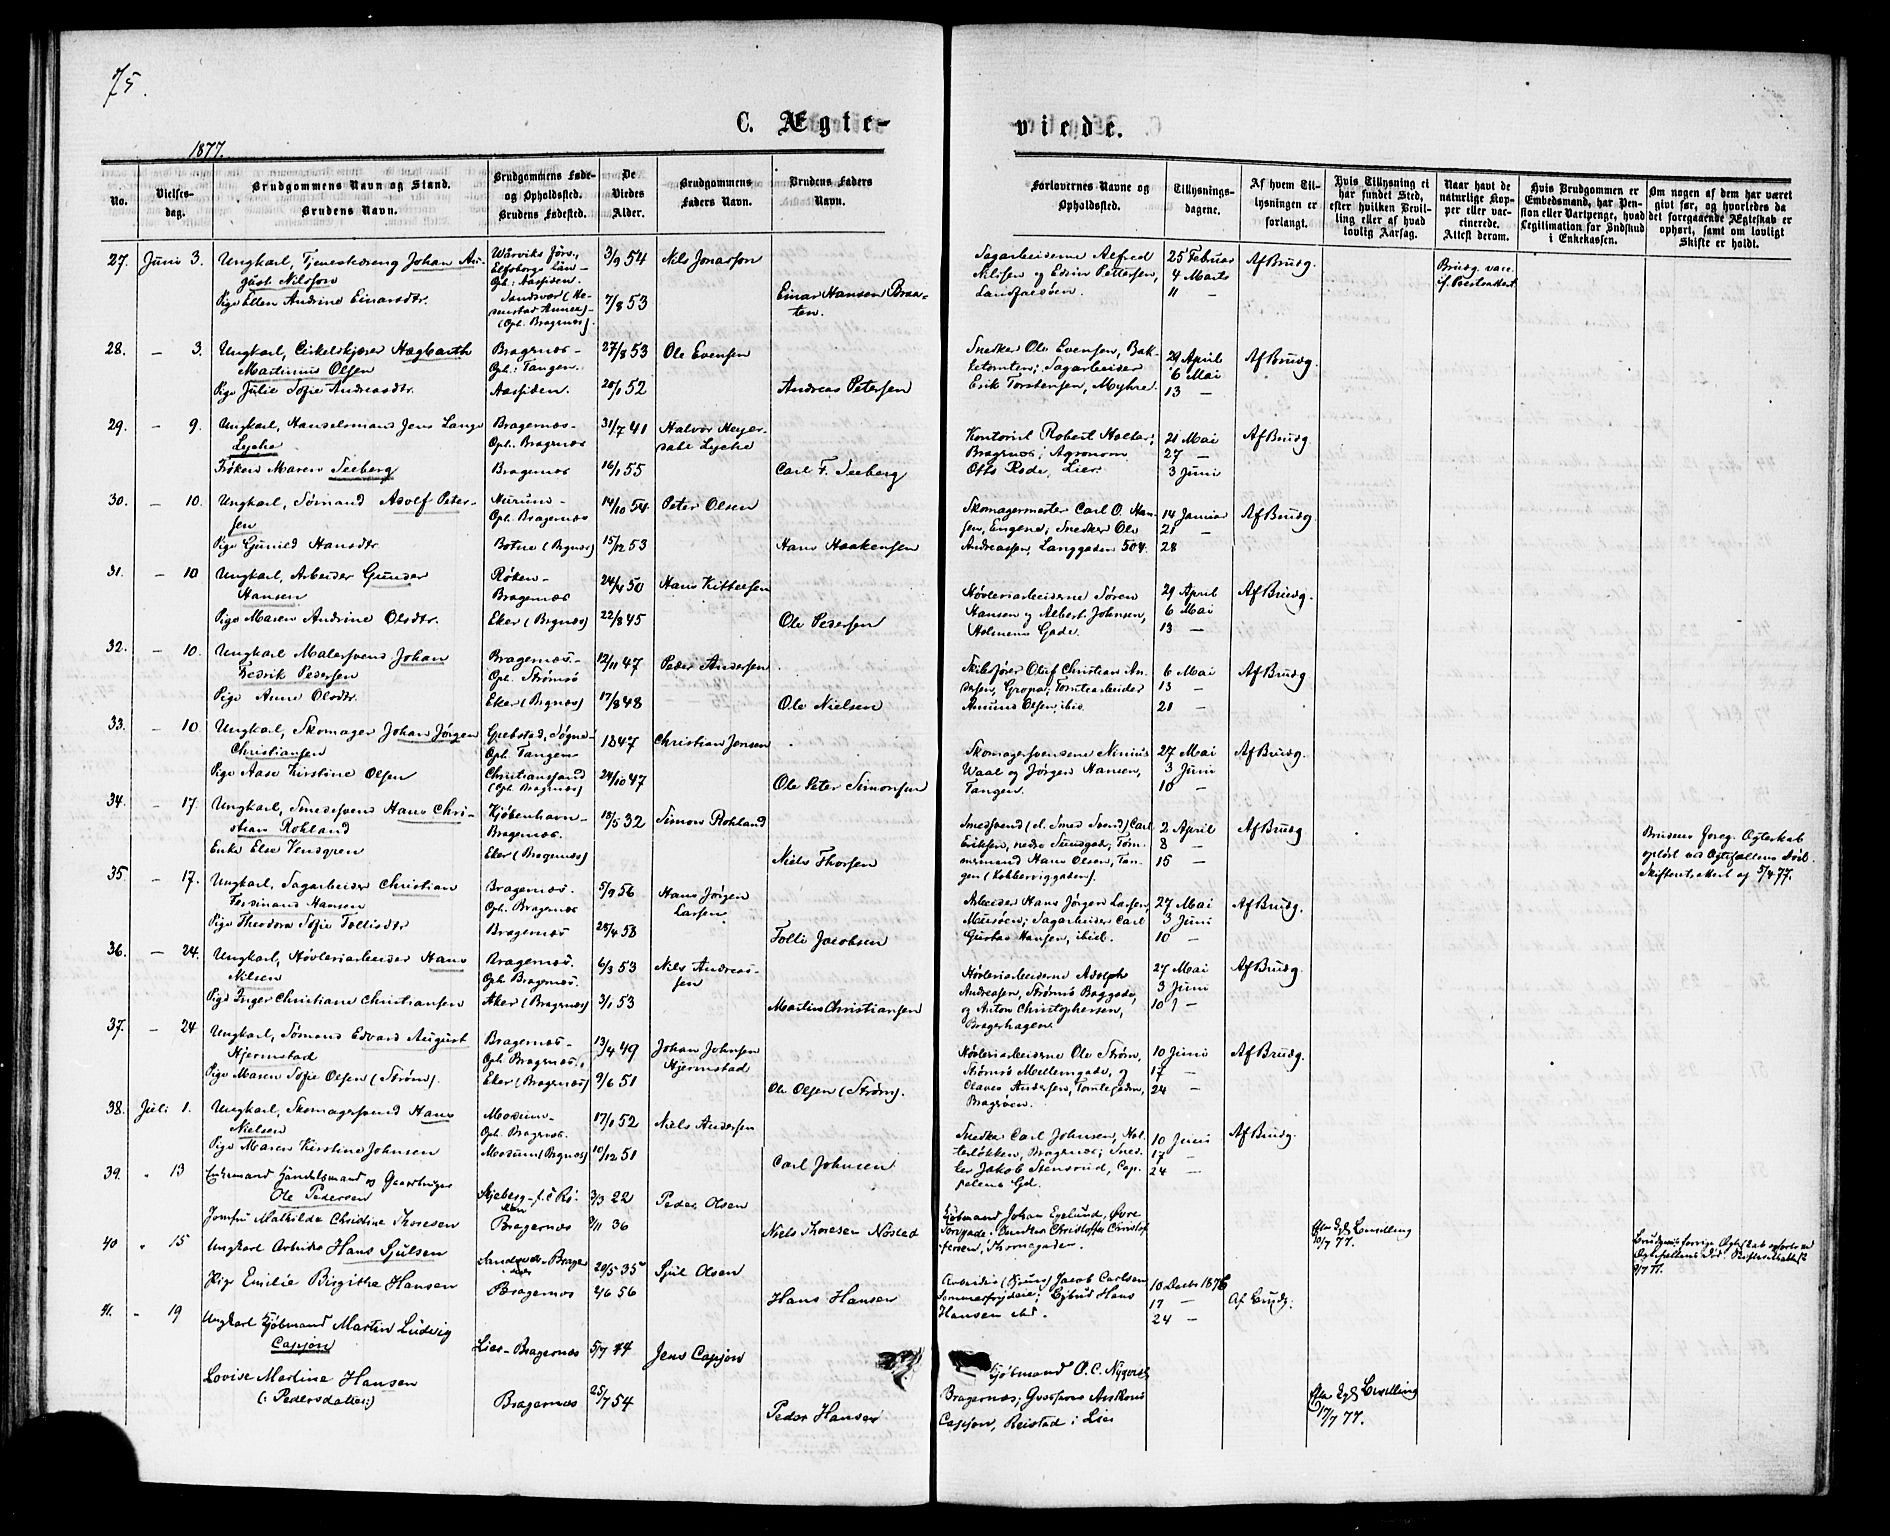 75.
C. Ægte-
viede.
1877.
No.
Vielses-
dag.
Brudgommens Navn og Stand.
Brudens Navn.
Brudgommens Føde-
og Opholdssted.
Brudens Fødested.
De
Viedes
Alder.
Brudgommens
Faders Navn.
Brudens Faders
Navn.
Forlovernes Navne og
Opholdssted.
Tillysnings-
dagene.
Af hvem Til-
lysningen er
forlangt.
Hvis Tillysning ei
har fundet Sted,
efter hvilken Bevil-
ling eller af hvad
lovlig Aarsag.
Naar havt de
naturlige Kop-
per eller vac-
cinerede.
Attest derom.
Hvis Brudgommen er
Embedsmand, har Pen-
sion eller Vartpenge, hvad
Legitimation for Indskud
i Enkekassen.
Om nogen af dem har været
givt før, og hvorledes da
det foregaaende Ægteskab er
ophørt, samt om lovligt
Skifte er holdt.
27. Juni 3.
Ungkarl, Tjenestedreng Johan Au-
gust Nilsson
Pige Ellen Andrine Einarsdtr.
Opl: Aassiden.
Sandsvær
(Opl. Bragernæs).
3/9 54
7/8 53
Nils Jonasson
Einar Hansen Braa-
ten.
Sagarbeiderne Alfred
Nilsen og Edvin Pettersen,
Landfaldøen.
25 Februar
4 Marts
11 —
Af Brudg.
Brudg. vacc.
28. — 3.
Ungkarl, Cirkelskjærer Hagbarth
Martinius Olsen
Pige Julie Sofie Andreasdtr.
Bragernæs-
Opl: Tangen.
Aassiden.
27/8 53
20/1 52
Ole Evensen
Andreas Petersen
Snedker Ole Evensen, Bak-
ketomten; Sagarbeider
Erik Torstensen, Myhre.
29 April
6 Mai
13 —
Af Brudg.
29. — 9.
Ungkarl, Handelsmand Jens Lange
Lyche
Frøken Maren Seeberg
Bragernæs-
Opl. Bragernæs
Bragernæs
31/7 41
16/1 55
Halvor Heyer-
dahl Lyche
Carl F. Seeberg
Kontorist Robert Holter,
Bragernæs; Agronom
Otto Rode, Lier.
21 Mai
27 —
3 Juni
Af Brudg.
30. — 10.
Ungkarl, Sømand Adolf Peter-
sen
Pige Gunild Hansdtr.
Hurum-
Opl. Bragernæs
Botne (Bragnæs)
14/10 54
15/12 53
Peter Olsen
Hans Haakensen
Skomagermester Carl O. Han-
sen, Engene; Snedker Ole
Andreassen, Langgaden 504.
14 Januar
21 —
28
Af Brudg.
31. — 10
Ungkarl, Arbeider Gunder
Hansen
Pige Maren Andrine Olsdtr.
Røken-
Bragernæs
Eker (Bragnæs)
24/4 50
22/8 45
Hans Kittelsen
Ole Pedersen
Høvleriarbeiderne Søren
Hansen og Albert Johnsen,
Holmens Gade.
29 April
6 Mai
13 —
Af Brudg.
32. — 10.
Ungkarl Malersvend Johan
Fredrik Pedersen
Pige Anne Olsdtr.
Bragernæs.
Opl. Strømsø
Eker (Bragnæs)
12/11 47
17/8 48
Peder Andersen
Ole Nielsen
Skibsfører Oluf Christian An-
dersen, Gropa; Tomtearbeider
Amund Olsen, ibid.
6 Mai
13 —
21 —
Af Brudg
33. — 10
Ungkarl, Skomager Johan Jørgen
Christiansen
Pige Aase Kirstine Olsen
Grebstad, Søgne-
Opl. Tangen
Christianssand
(Opl. Bragernæs)
1847
24/10 47
Christian Jensen
Ole Peter Simonsen
Skomagersvendene Ninius
Waal og Jørgen Hansen,
Tangen.
27 Mai
3 Juni
10 —
Af Brudg.
34. — 17.
Ungkarl, Smedesvend Hans Chri-
stian Rohland
Enke Else Vendgren
Kjøbenhavn-
Bragernæs.
Eker (Bragnæs)
13/5 32
Simon Rohland
Niels Thorsen
Smedsvend (d. Smed Svend) Carl
Eriksen, nedre Sundgade; Tøm-
mermand Hans Olsen, Tan-
gen (Kobberviggaden).
2 April
8 —
15 —
Af Brudg
Brudens foreg. Ægteskab
opløst ved Ægtefællens Død.
Skifteretsattest af 3/4 77.
35. — 17.
Ungkarl, Sagarbeider Christian
Ferdinand Hansen
Pige Theodora Sofie Tollisdtr
Bragernæs.
Opl. Bragernæs
Bragernæs
5/9 56
28/4 58
Hans Jørgen
Larsen
Tolli Jacobsen
Arbeider Hans Jørgen Larsen,
Muusøen; Sagarbeider Carl
Gustav Hansen, ibid.
27 Mai
3 Juni
10 —
Af Brudg.
36. — 24.
Ungkarl, Høvleriarbeider Hans
Nilsen
Pige Inger Christiane Christiansen
Bragernæs.
Opl Bragernæs.
Aker (Bragernæs)
6/3 53
3/1 53
Niels Andreas-
sen
Martin Christiansen
Høvleriarbeiderne Adolph
Andreasen, Strømsø Baggade,
og Anton Christophersen,
Bragerhagen.
27 Mai
3 Juni
10 —
Af Brudg.
37. — 24
Ungkarl, Sømand Edvard August
Hjermstad
Pige Maren Sofie Olsen (Strøm).
Bragernæs-
Opl. Bragernæs.
Eker (Bragernæs)
13/4 49
9/6 51
Johan Johnsen
Hjermstad
Ole Olsen (Strøm).
Høvleriarbeiderne Ole Strøm,
Strømsø Mellemgade, og
Olaves Andersen, Tomtegaden,
Bragerøen.
10 Juni
17 —
24 —
Af Brudg.
38. Juli 1.
Ungkarl, Skomagersvend Hans
Nielsen
Pige Maren Kirstine Johnsen
Modum-
Opl. Bragernæs.
Modum (Bragnæs)
17/1 52
10/12 51
Niels Andersen
Carl Johnsen
Snedker Carl Johnsen, Hol-
terløkken, Bragernæs; Sned-
ker Jakob Stensrud, Cap-
pelens Gd.
10 Juni
17 —
24 —
Af Brudg.
39. " 13
Enkemand Handelsmand og Gaardbruger
Ole Pedersen
Jomfru Mathilde Christine Thoresen
Bragernæs
3/3 22
9/11 36
Peder Olsen
Niels Thoresen Nøsted
Kjøbmand Johan Egelund, Øvre
Torvgade; Christoffer Christof-
fersen, Thornegaden.
efter Kgl Bevilling
10/7 77.
Brudgommens forrige Ægteskab opløst ved
Ægtefællens Død. Skifteretsattest
9/7 77.
40 " 15
Ungkarl Arbeider Hans Sjulsen
Pige Emilie Birgithe Hansen
Sandsvær-Brager
næs
Bragernæs
20/5 35
2/6 56
Sjul Olsen
Hans Hansen
Arbeider Jacob Carlsen
Sommerfrydløkke; Hans
Hansen ibid.
10 Decbr 1876
17 —
24 —
Af Brudg.
41. " 19
Ungkarl Kjøbmand Martin Ludvig
Cappjon
Lovise Martine Hansen
(: Pedersdatter :)
Lier-Bragernæs
Bragernæs
5/7 44
25/7 54
Jens Cappjon
Peder Hansen
Kjøbmand O. C. Nygaard,
Bragernæs;
Cappjon, Reistad i Lier
efter Kgl Bevilling
17/7 77.